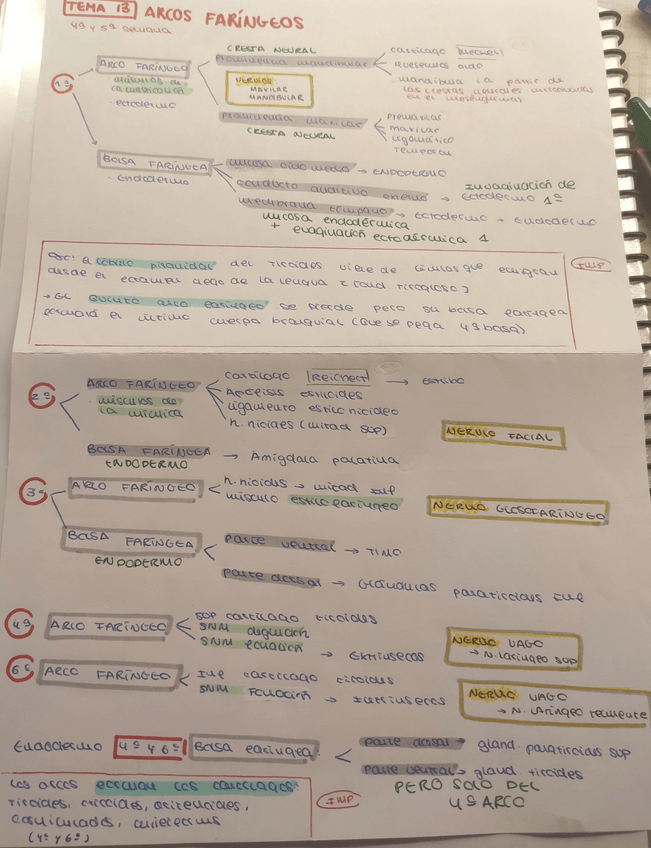 TEMA 13 ARCOS FARÍNGEOS
4ª y 5ª semana
1º
ARCO FARÍNGEO
músculos de la masticación
· ectodermo
CRESTA NEURAL
Prominencia mandibular
cartílago Meckel
huesecillos oido
mandíbula (a partir de las crestas neurales
en el mesénquima)
NERVIOS
MAXILAR
MANDIBULAR
Prominencia maxilar
CRESTA NEURAL
Premaxilar
maxilar
cigomático
temporal
BOLSA FARÍNGEA
· Endodermo
mucosa oido medio → ENDODERMO
conducto auditivo externo → Ectodermo 1º
Invaginación de
membrana tímpano → Ectodermo - Endodermo
mucosa endodérmica
+ evaginación ectodérmica 1
lóbulo piramidal del tiroides viene de que emigran
desde el ciego de la lengua
→ El quinto arco faríngeo se pierde pero su bolsa faríngea
formará el último cuerpo branquial (que se pega 4ª bolsa)
IMP
2º
ARCO FARÍNGEO
· músculos de
la mímica
cartílago Reichert → estribo
Apófisis estiloides
ligamento estilohioideo
h. hioides (mitad sup)
NERVIO FACIAL
BOLSA FARÍNGEA → Amígdala palatina
ENDODERMO
3º
ARCO FARÍNGEO
h. hioides → mitad inf
músculo estilofaríngeo
NERVIO GLOSOFARÍNGEO
BOLSA FARÍNGEA
ENDODERMO
parte ventral → TIMO
parte dorsal → Glándulas paratiroides inf
4º
ARCO FARÍNGEO
sup cartílago tiroides
SNM deglución
SNM fonación → Extrínsecos
NERVIO VAGO
→ N. laríngeo sup
6º
ARCO FARÍNGEO
inf cartílago tiroides
SNM fonación → intrínsecos
NERVIO VAGO
→ N. laríngeo recurrente
Endodermo 4º y 6º Bolsa faríngea
parte dorsal → gland. paratiroides sup
parte ventral → gland tiroides
PERO SOLO DEL
4º ARCO
Los arcos forman los cartílagos:
tiroides, cricoides, aritenoides,
corniculados, cuneiformes
(4º y 6º)
IMP